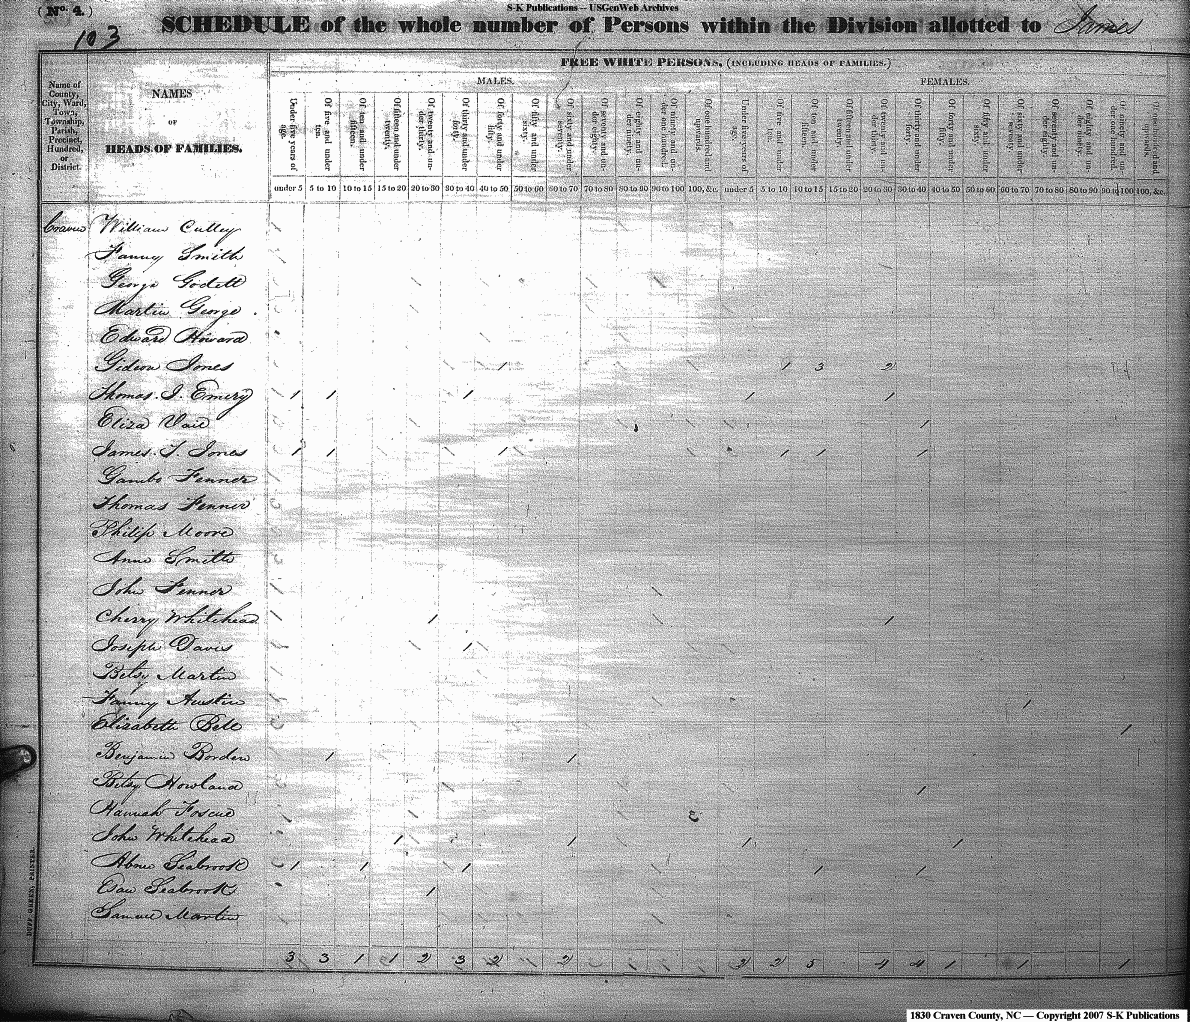 S-K Publications – USGenWeb Archives
( No. 4. )
SCHEDULE of the whole number of Persons within the Division allotted to James
103
FREE WHITE PERSONS, (INCLUDING HEADS OF FAMILIES.)
MALES. FEMALES.
Name of County, City, Ward, Town, Township, Parish, Precinct, Hundred, or District.
NAMES
OF
HEADS OF FAMILIES.
Under five years of age. Of five and under ten. Of ten and under fifteen. Of fifteen and under twenty. Of twenty and under thirty. Of thirty and under forty. Of forty and under fifty. Of fifty and under sixty. Of sixty and under seventy. Of seventy and under eighty. Of eighty and under ninety. Of ninety and under one hundred. Of one hundred and upwards. Under five years of age. Of five and under ten. Of ten and under fifteen. Of fifteen and under twenty. Of twenty and under thirty. Of thirty and under forty. Of forty and under fifty. Of fifty and under sixty. Of sixty and under seventy. Of seventy and under eighty. Of eighty and under ninety. Of ninety and under one hundred.
under 5 5 to 10 10 to 15 15 to 20 20 to 30 30 to 40 40 to 50 50 to 60 60 to 70 70 to 80 80 to 90 90 to 100 100, &c. under 5 5 to 10 10 to 15 15 to 20 20 to 30 30 to 40 40 to 50 50 to 60 60 to 70 70 to 80 80 to 90 90 to 100 100, &c.
Craven William Culley
Fanny Smith
George Godett
Martin George
Edward Howard
Gideon Jones 1 1 3 2
Thomas. J. Emery 1 1 1 1 1
Eliza 1
James. T. Jones 1 1 1 1 1 1
Gambo Fenner
Thomas Fenner
Philip Moore
Anne Smith
John Fenner
Cherry Whitehead 1 1
Joseph Davis 1
Betsy Martin
Fanny Austin 1
Elizabeth Bell 1
Benjamin Borden 1 1
Betsy Howland 1
Hannah Foscue
John Whitehead 1 1 1 1
Abner Seabrook 1 1 1 1 1
Esau Seabrook 1
Samuel Martin
3 3 1 1 2 3 2 2 2 2 5 4 4 1 1 1
DUFF GREEN, PRINTER.
1830 Craven County, NC — Copyright 2007 S-K Publications